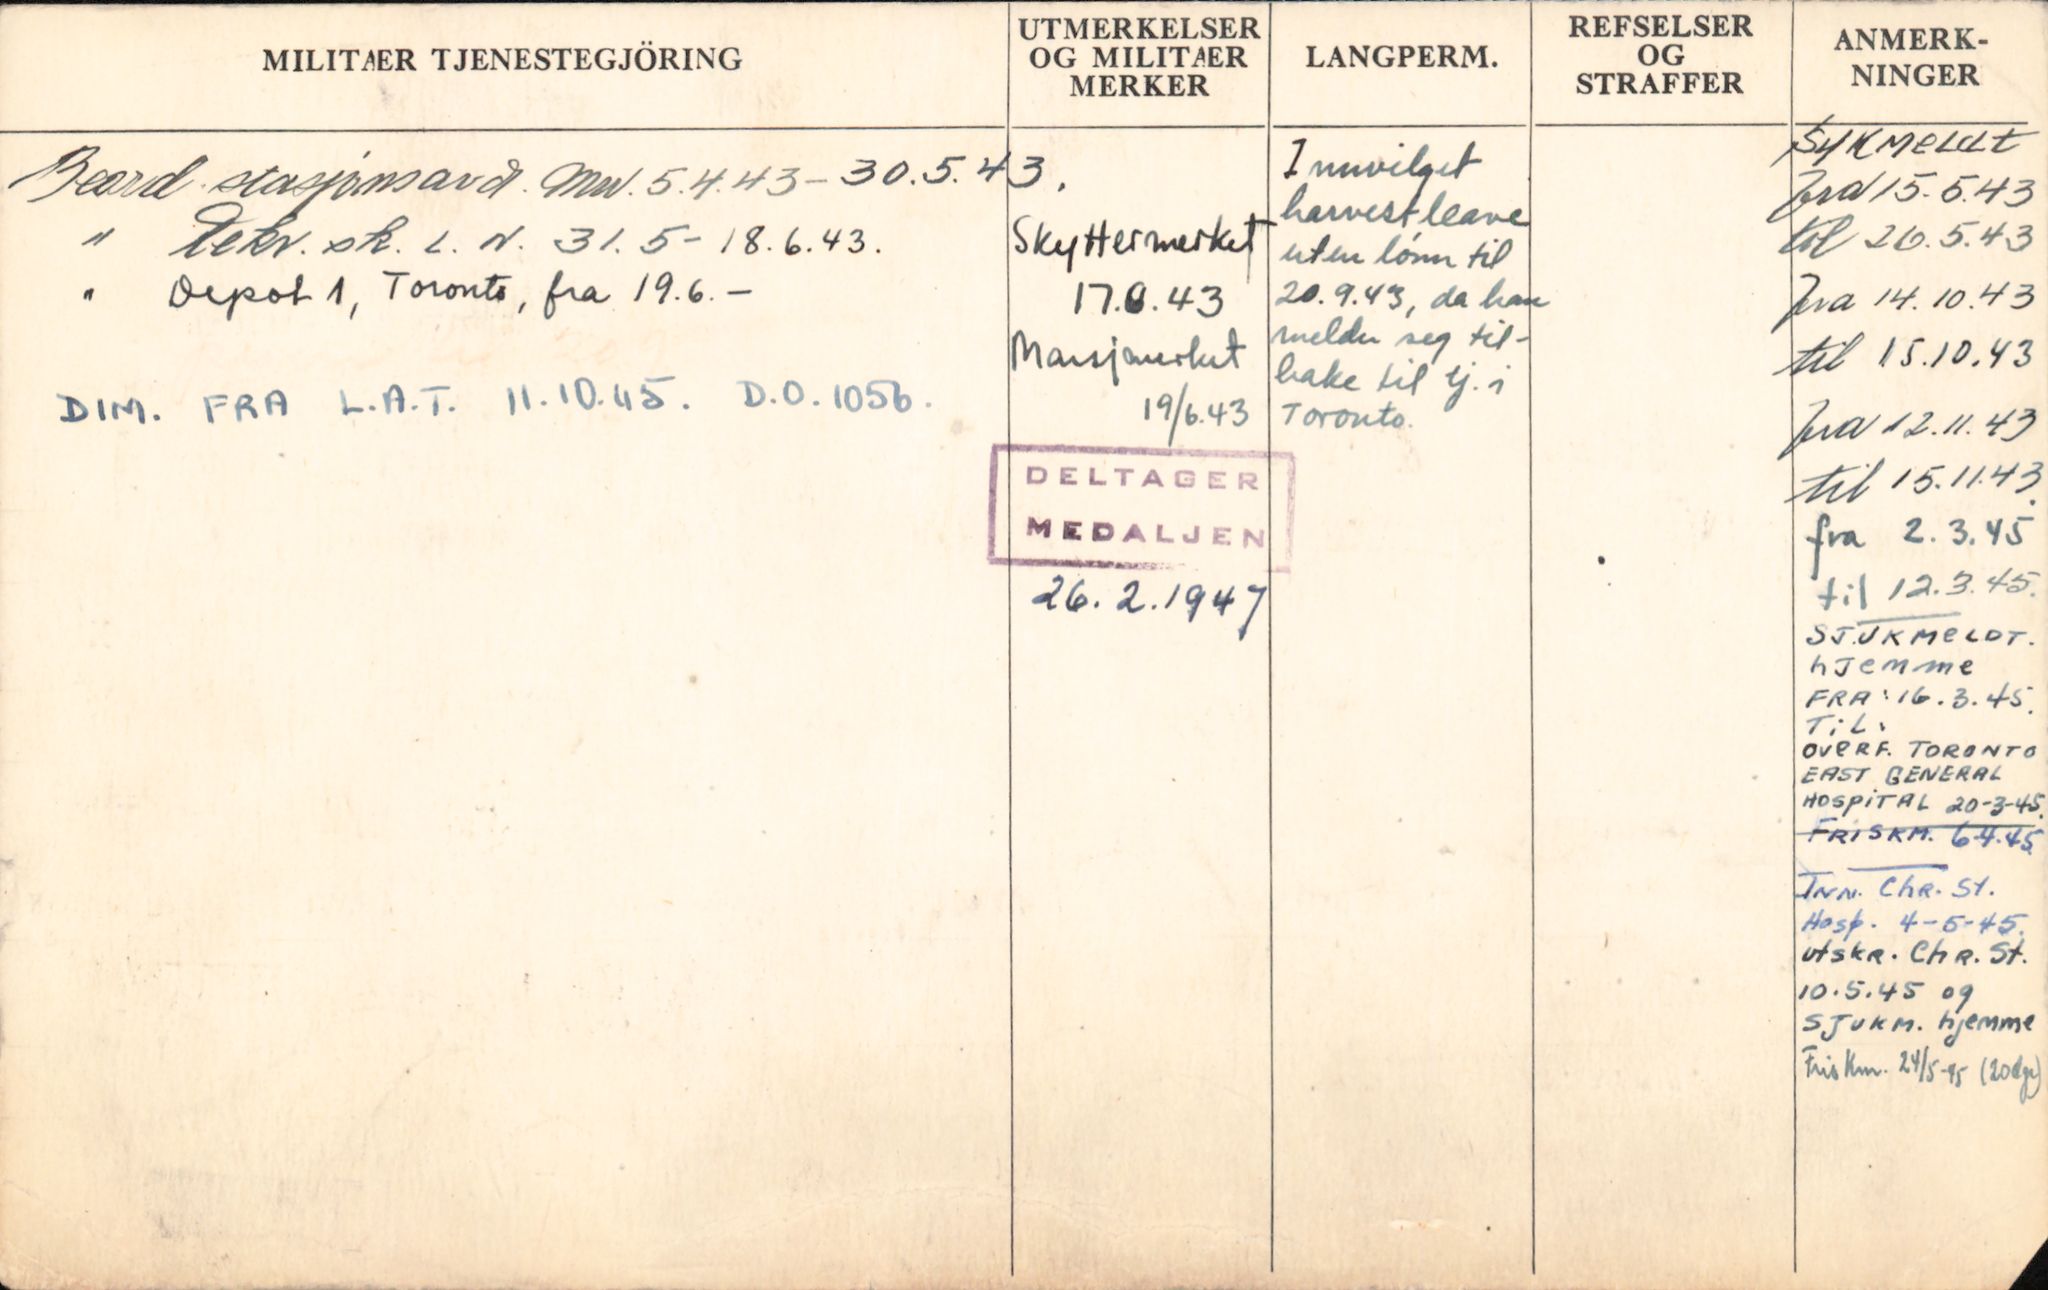 MILITÆR TJENESTEGJÖRING
Beord. stasjonsavd. Mw. 5.4.43 – 30.5.43.
" Rekr. sk. L. N. 31.5 – 18.6.43.
" Depot 1, Toronto, fra 19.6. –
DIM. FRA L.A.T. 11.10.45. D.O. 1056.
UTMERKELSER
OG MILITÆR
MERKER
Skyttermerket
17.6.43
Marsjmerket
19/6.43
DELTAGER
MEDALJEN
26.2.1947
LANGPERM.
Innvilget
harvest leave
uten lönn til
20.9.43, da han
melder seg til-
bake til tj. i
Toronto.
REFSELSER
OG
STRAFFER
ANMERK-
NINGER
SYKMELDT
fra 15.5.43
til 26.5.43
fra 14.10.43
til 15.10.43
fra 12.11.43
til 15.11.43.
fra 2.3.45
til 12.3.45.
SJUKMELDT.
hjemme
FRA: 16.3.45.
TiL:
OVERF. TORONTO
EAST GENERAL
HOSPITAL 20-3-45.
FRISKM. 6.4.45.
INN. Chr. St.
Hosp. 4-5-45.
UTSKR. Chr. St.
10.5.45 og
SJUKM. hjemme
Friskm. 24/5-45 (20 dgr)